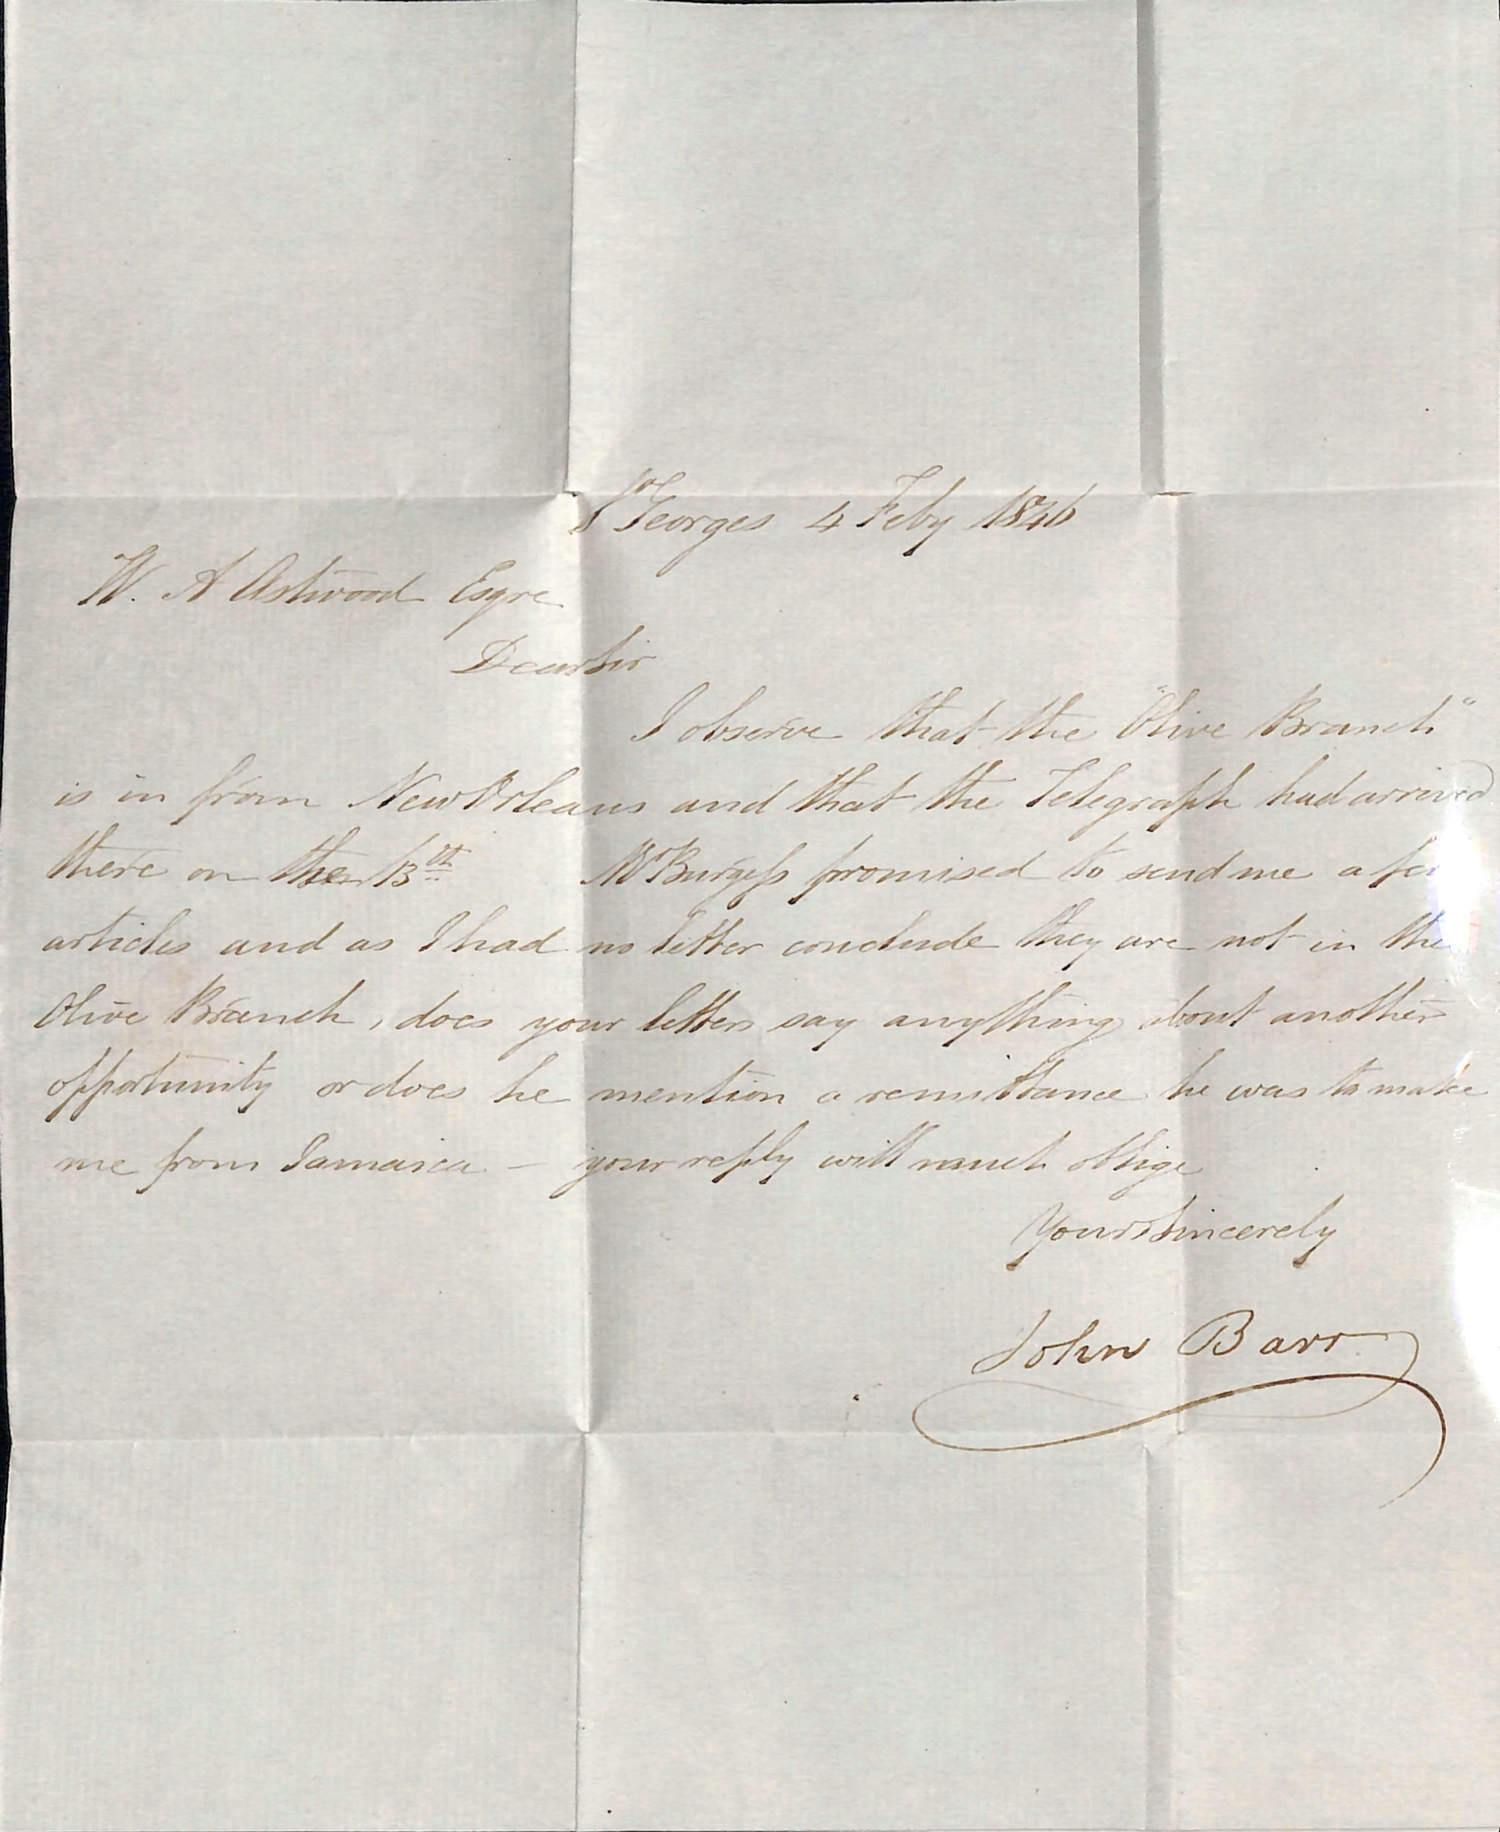 St Georges 4 Feby 1846
W. A Astwood Esqre
Dear Sir
I observe that the "Olive Branch"
is in from New Orleans and that the Telegraph had arrived
there on the 13th Mr Burgess promised to send me a few
articles and as I had no letter conclude they are not in the
Olive Branch, does your letters say anything about another
opportunity or does he mention a remittance he was to make
me from Jamaica – your reply will much oblige
Yours Sincerely
John Barr